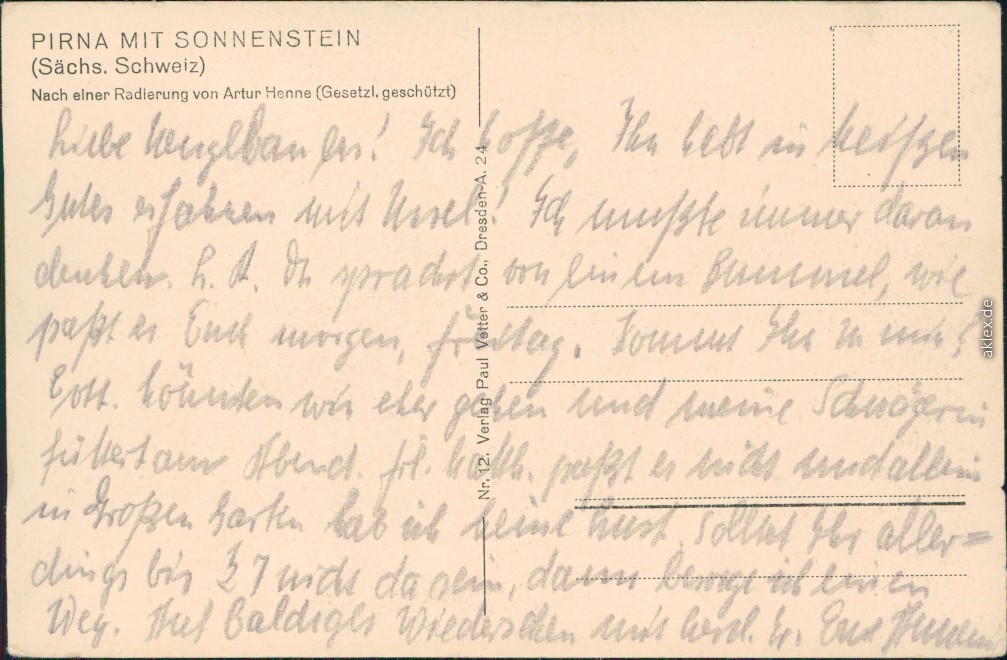 PIRNA MIT SONNENSTEIN
(Sächs. Schweiz)
Nach einer Radierung von Artur Henne (Gesetzl. geschützt)
Nr. 12. Verlag Paul Vetter & Co., Dresden-A. 24
Liebe ! Ich hoffe, Ihr habt in Meißen
Gutes erfahren mit Ursel! Ich mußte immer daran
denken. L. A. Du sprachst von einem Bummel, wie
paßt es Euch morgen, Freitag. Kommt Ihr zu mir?
Evtl. könnten wir eher gehen und meine Schwägerin
am Abend. Frl. paßt es nicht und allein
in Großen Garten hab ich keine Lust. Solltet Ihr aller=
dings bis 7 nicht da sein, dann besorge ich einen
Weg. Auf baldiges Wiedersehen mit herzl. Gr. Eure
aklex.de